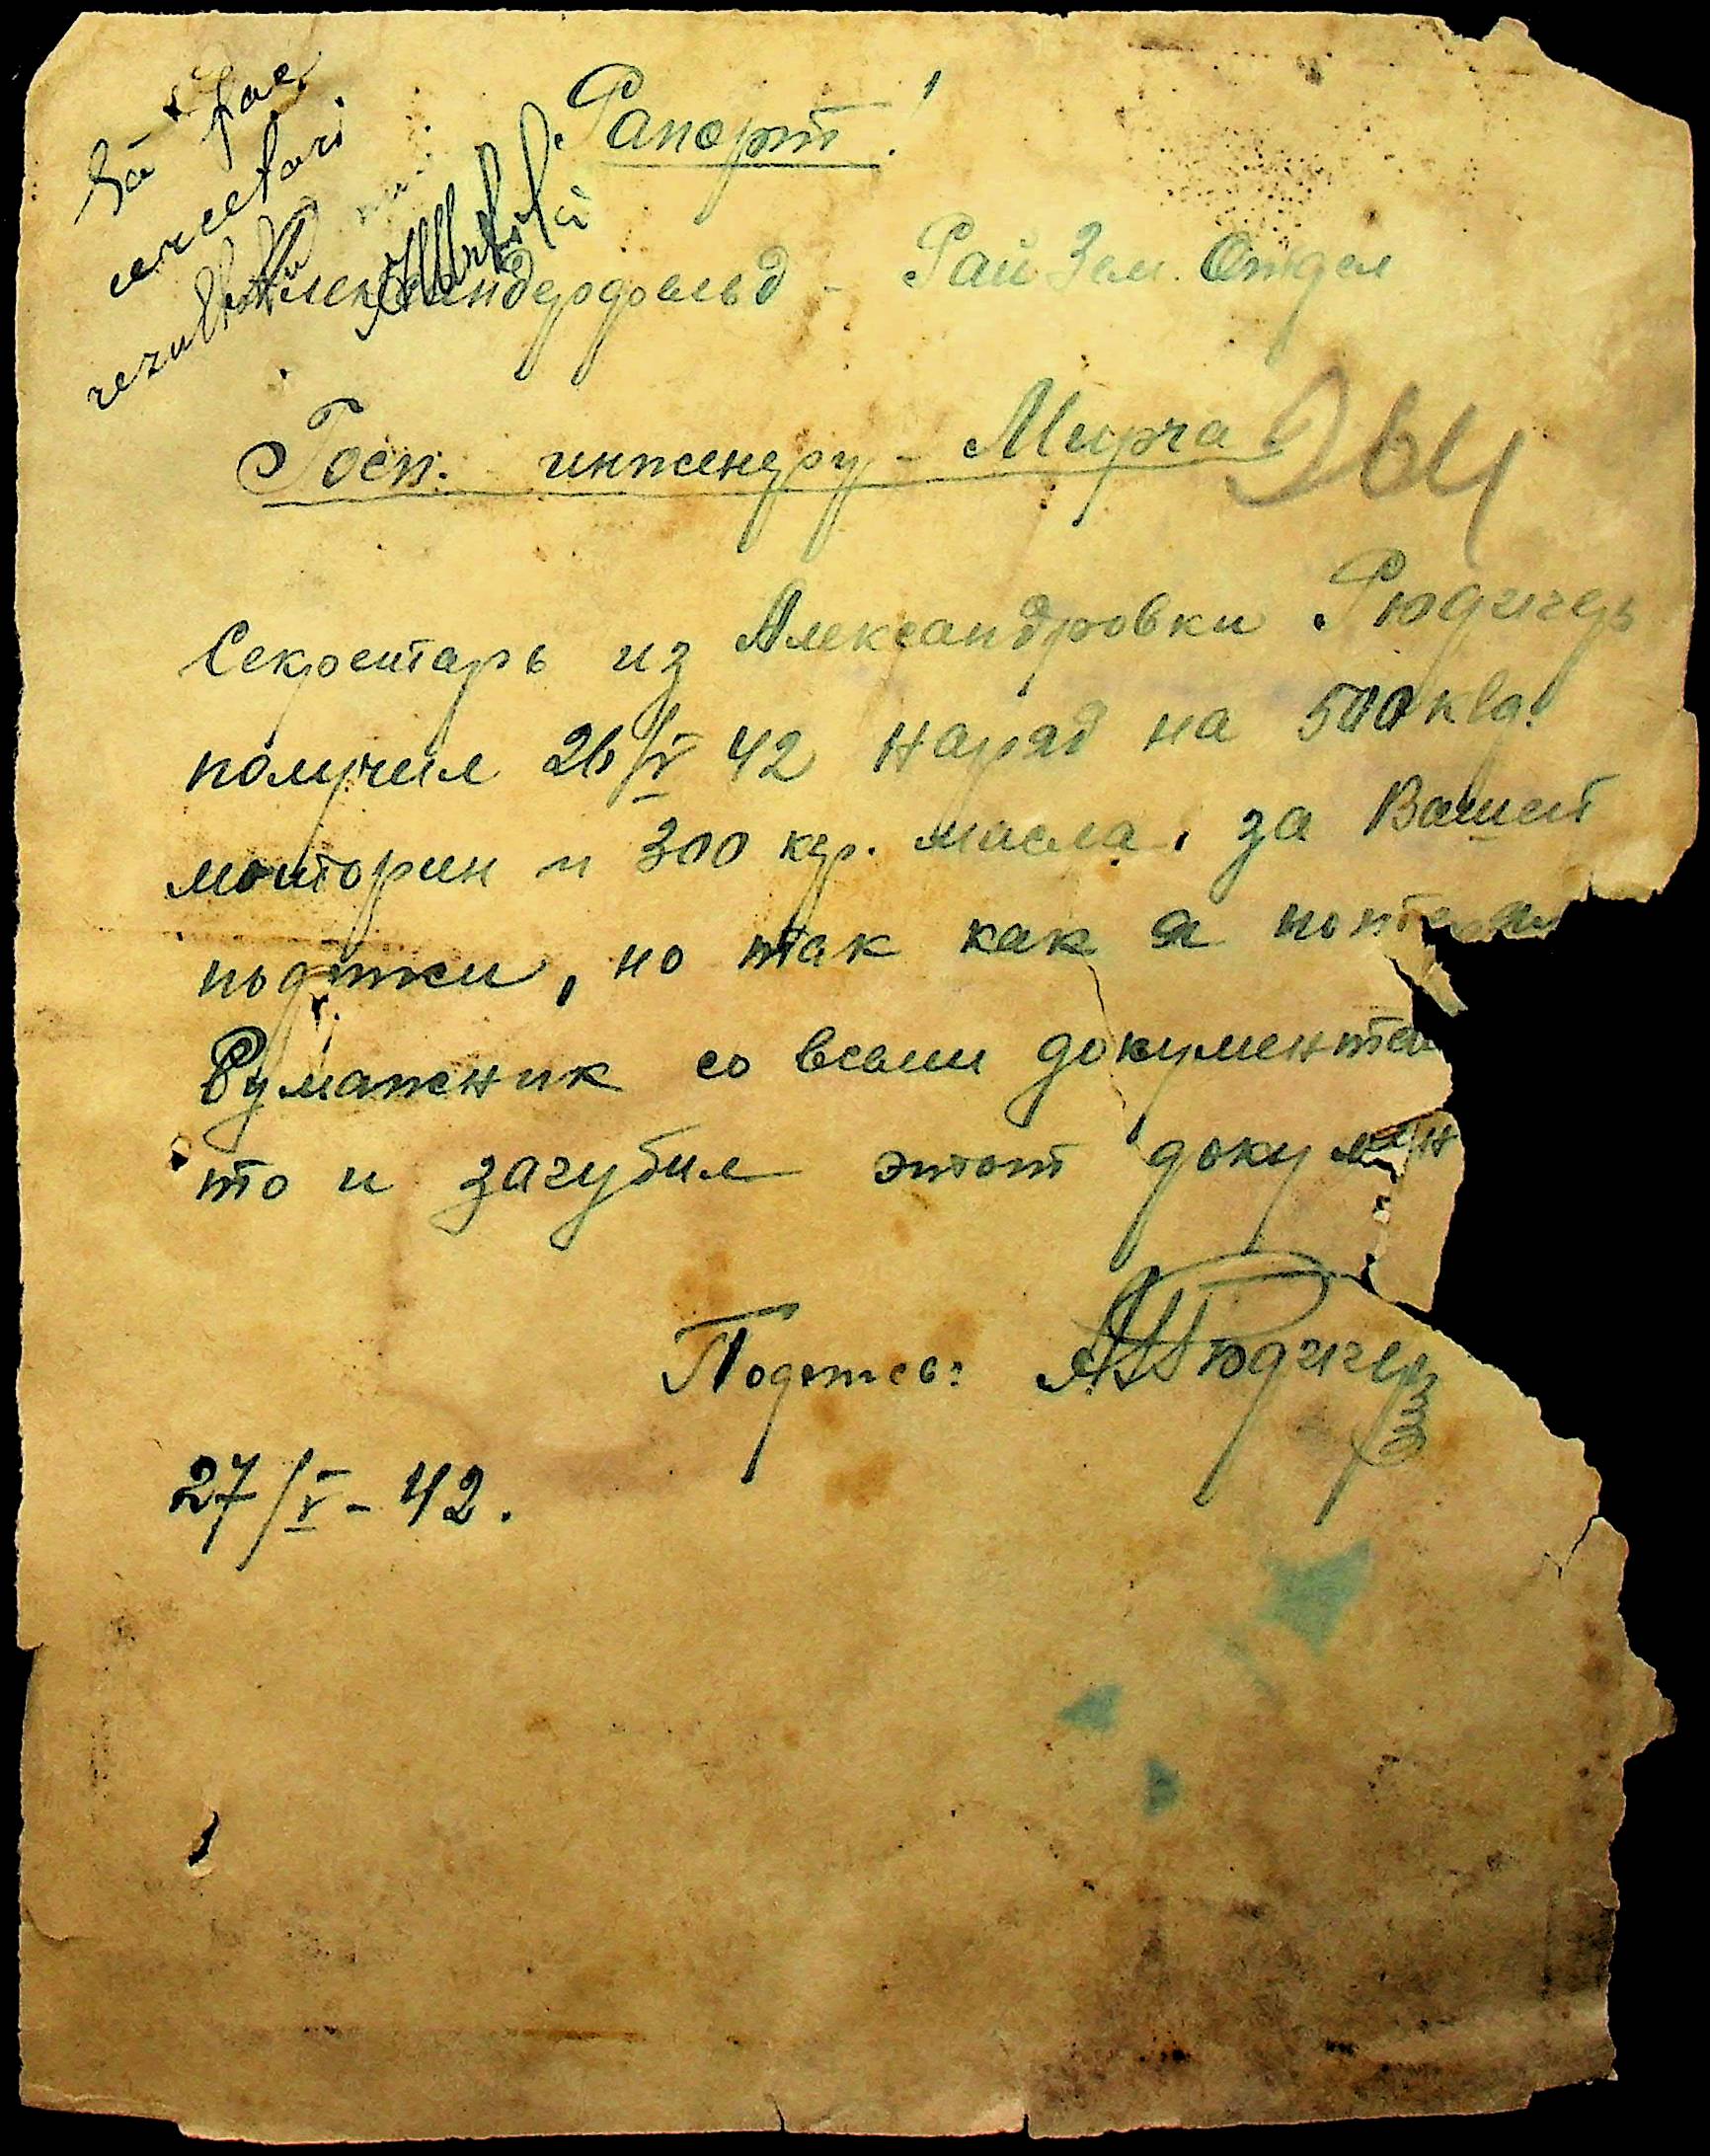 Să face
cercetări
Рапорт!
Александерфельд - Рай Зем. Отдел
Госп. инженеру - Мирча.
Секретарь из Александровки Рюдигер
получил 26/V 42 наряд на 500 клг.
моиторин и 300 кгр. масла, за Вашей
подписи, но так как я потерял
Бумажник со всеми документа
то и загубил этот докумен
Подпись: А Рюдигер
27/V - 42.